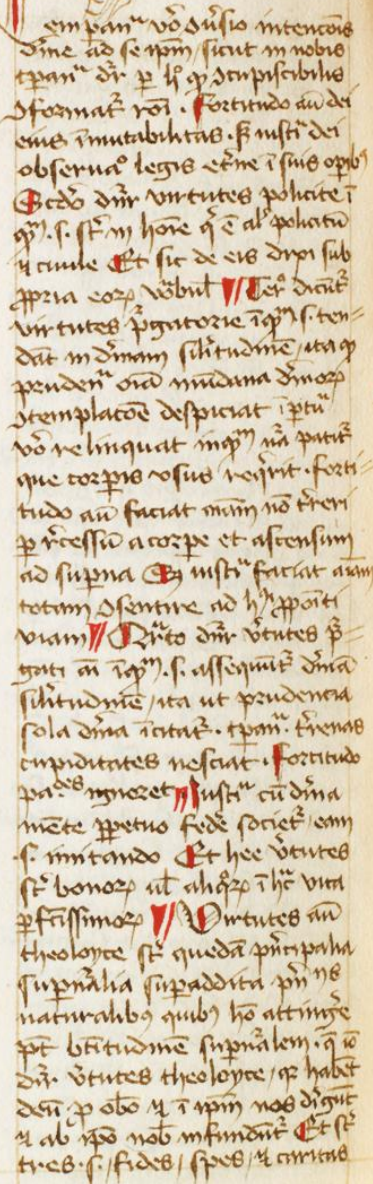 Tempanᵃ vo ꝯuͥsio intencōis
dīne ad se ip̄m, sicut in nobis
tpanᵃ dr̄ p̱ hͦ qꝫ ꝯcupiscibilis
ꝯformat᷑ rōi. Fortitudo aū dei
eius īmutabilitas. sꝫ iustiᵃ dei
obseruaͦ legis etͥne ī suis opibꝫ
Scdo dn̄r virtutes policite ī
qᵃꝫ. s. st᷑ in hoīe qͥ ē aīal policitū
⁊ ciuile Et sic de eis dixi sub
ꝓpria eorꝫ vobul̄ ¶ Terͦ dicūt᷑
virtutes pͥgatorie īqᵃꝫ s. ten-
dāt in dīnam sil̄itudinē, ita qꝫ
prudenᵃ oīa mūdana dīnorꝫ
ꝯtemplacōē despiciat, tpatū
vo relinquat inqᵃꝫ nā patit᷑
que corꝑis vsus reqͥrit. forti-
tudo aū faciat aīam nō tͥreri
ꝓ rͥcessū a corpe et ascensum
ad supͥna Sꝫ iustiᵃ faciat aīam
totam ꝯsentire ad hͥꝫ ꝓpoīti
viam ¶ Qͬrto dn̄r vͥtutes pͥ-
gati aī īqᵃꝫ. s. assequūt᷑ dīnā
sil̄itudinē, ita ut prudencia
sola dīna ītuat᷑. tpanᵃ. tͥrenas
cupiditates nesciat. Fortitudo
pa.ᵈᵉˢ ignoret ¶ Iustiᵃ cū dīna
mente ꝑpetuo fede societ᷑, eam
.s. imitando Et hee vͥtutes
st᷑ bonorꝫ ul̄ aliqͦrꝫ ī hᵃc vita
ꝑfc̄issimorꝫ ¶ Virtutes aū
theoloyce st᷑ quedā pͥncipalia
supnͣalia supaddita pͥn ys
naturalibꝫ quibꝫ hō attingͤe
pt̄ bt̄itudinē supnͣalem. q̄ iō
dn̄r vͥtutes theoloyce, qꝛ habēt
deū ꝓ obō ⁊ ī ip̄m nos diͥgūt
⁊ ab ip̄o nob̄ infundūt᷑ Et st᷑
tres .s. fides, spes, ⁊ caritas